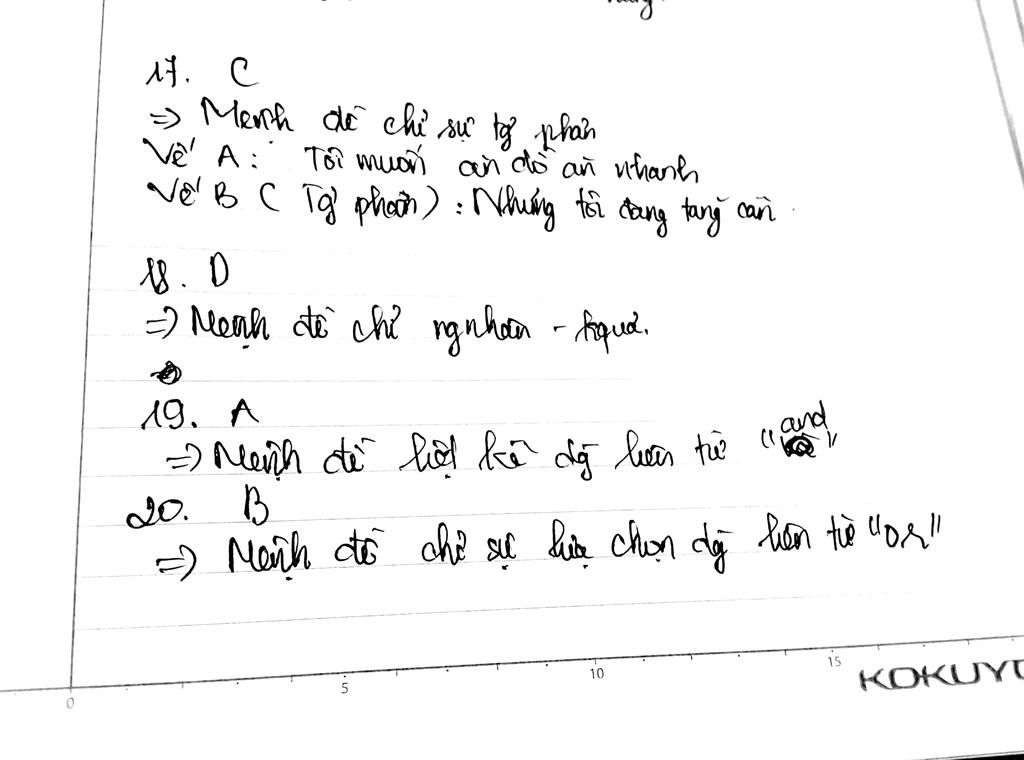 17. C
=> Mệnh đề chỉ sự tg phản
Vế A: Tôi muốn ăn đồ ăn nhanh
Vế B (Tg phản): Nhưng tôi đang tăng cân
18. D
=> Mệnh đề chỉ ng nhân - kquả.
19. A
=> Mệnh đề liệt kê dg liên từ "and"
20. B
=> Mệnh đề chỉ sự lựa chọn dg liên từ "or"
0 5 10 15
KOKUYO